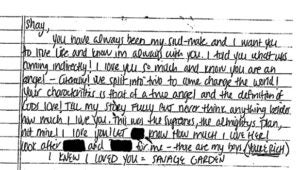 Shay,
You have always been my soul-mate and I want you
to love life and know im always with you. I told you what was
coming indirectly! I love you so much and know you are an
angel - literally! We split into two to come change the world!
Your characteristics is that of a true angel and the definition of
God's love! Tell my story fully but never think anything besides
how much I love you. This was the supremes, the almightys plan,
not mine! I love you! Let know how much I love her!
Look after and for me - those are my boys (You're Rich)
I KNEW I LOVED YOU = SAVAGE GARDEN